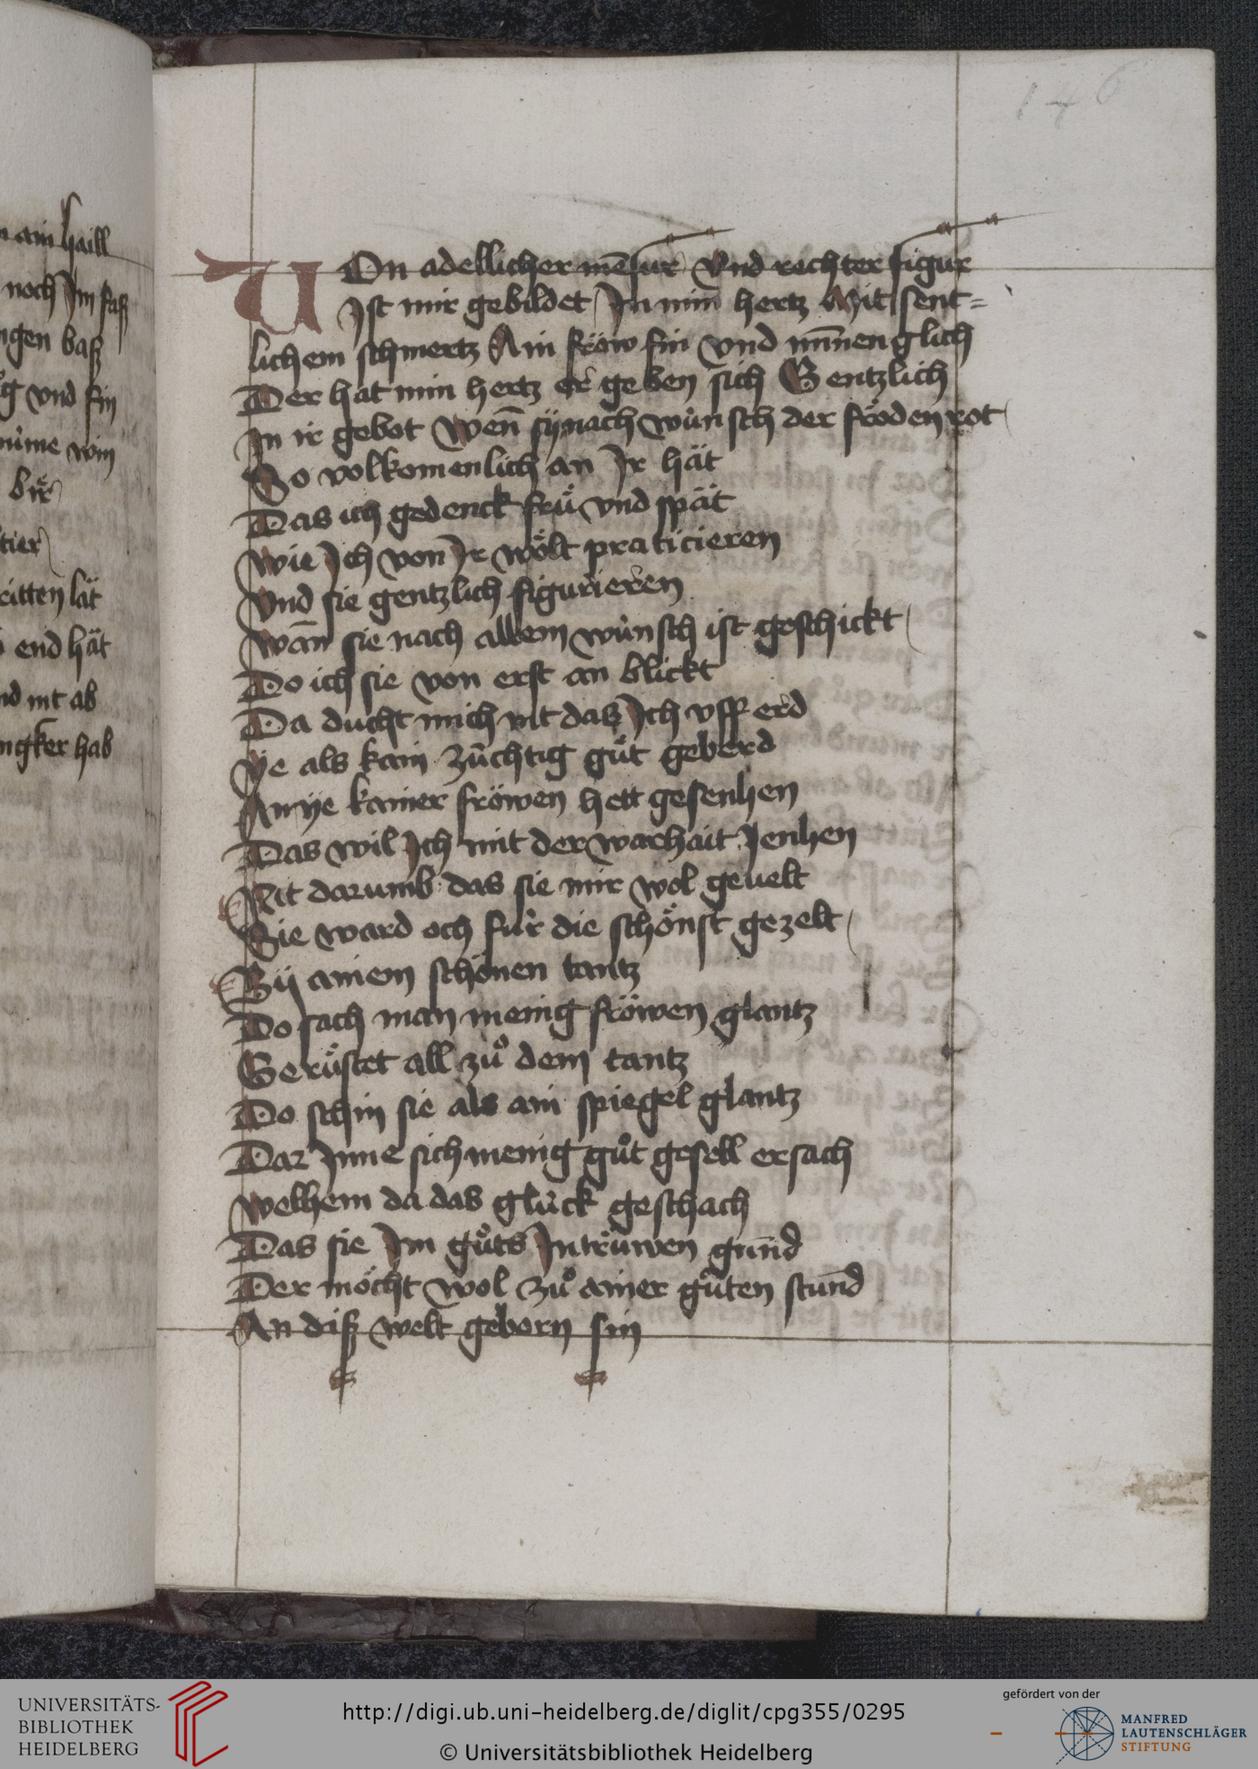 146
VOn adellicher mēsur Vnd rechter figur
Ist mir gebildet In min hertz Mit sent=
lichem schmertz Ain fröw fin vnd mīnenglich
Der hat min hertz er geben sich Gentzlich
In ir gebot Wen̄ sÿ nach wùnsch der fröden rot
So volkomenlich an Ir hät
Das ich gedenck frü vnd spät
Wie Ich von Ir wölt praticieren
Vnd sie gentzlich figurieren
Wān sie nach allem wùnsch ist geschickt
Do ich sie von erst an blickt
Da ducht mich nit das Ich vff erd
Ye als kain zùchtig gůt geberd
An ye kainer fröwen hett gesenhen
Das wil Ich mit der warhait Jenhen
Nit darumb das sie mir wol geuelt
Sie ward och fùr die schönst gezelt
Bÿ ainem schönen tantz
Do sach man menig fröwen glantz
Gerüstet all zů dem tantz
Do schin sie als ain spiegel glantz
Dar Inne sich menig gůt gesell ersach
Welhem da das glùck geschach
Das sie Im gůts In trùwen gund
Der möcht wol zů ainer gůten stund
An diß welt geborn sin
ain haill
noch Im faß
ngen baß
g vnd fin
nùme win
bir
tier
ritten lät
end hät
nd nit ab
ngker hab
UNIVERSITÄTS-
BIBLIOTHEK
HEIDELBERG
http://digi.ub.uni-heidelberg.de/diglit/cpg355/0295
© Universitätsbibliothek Heidelberg
gefördert von der
MANFRED
LAUTENSCHLÄGER
STIFTUNG